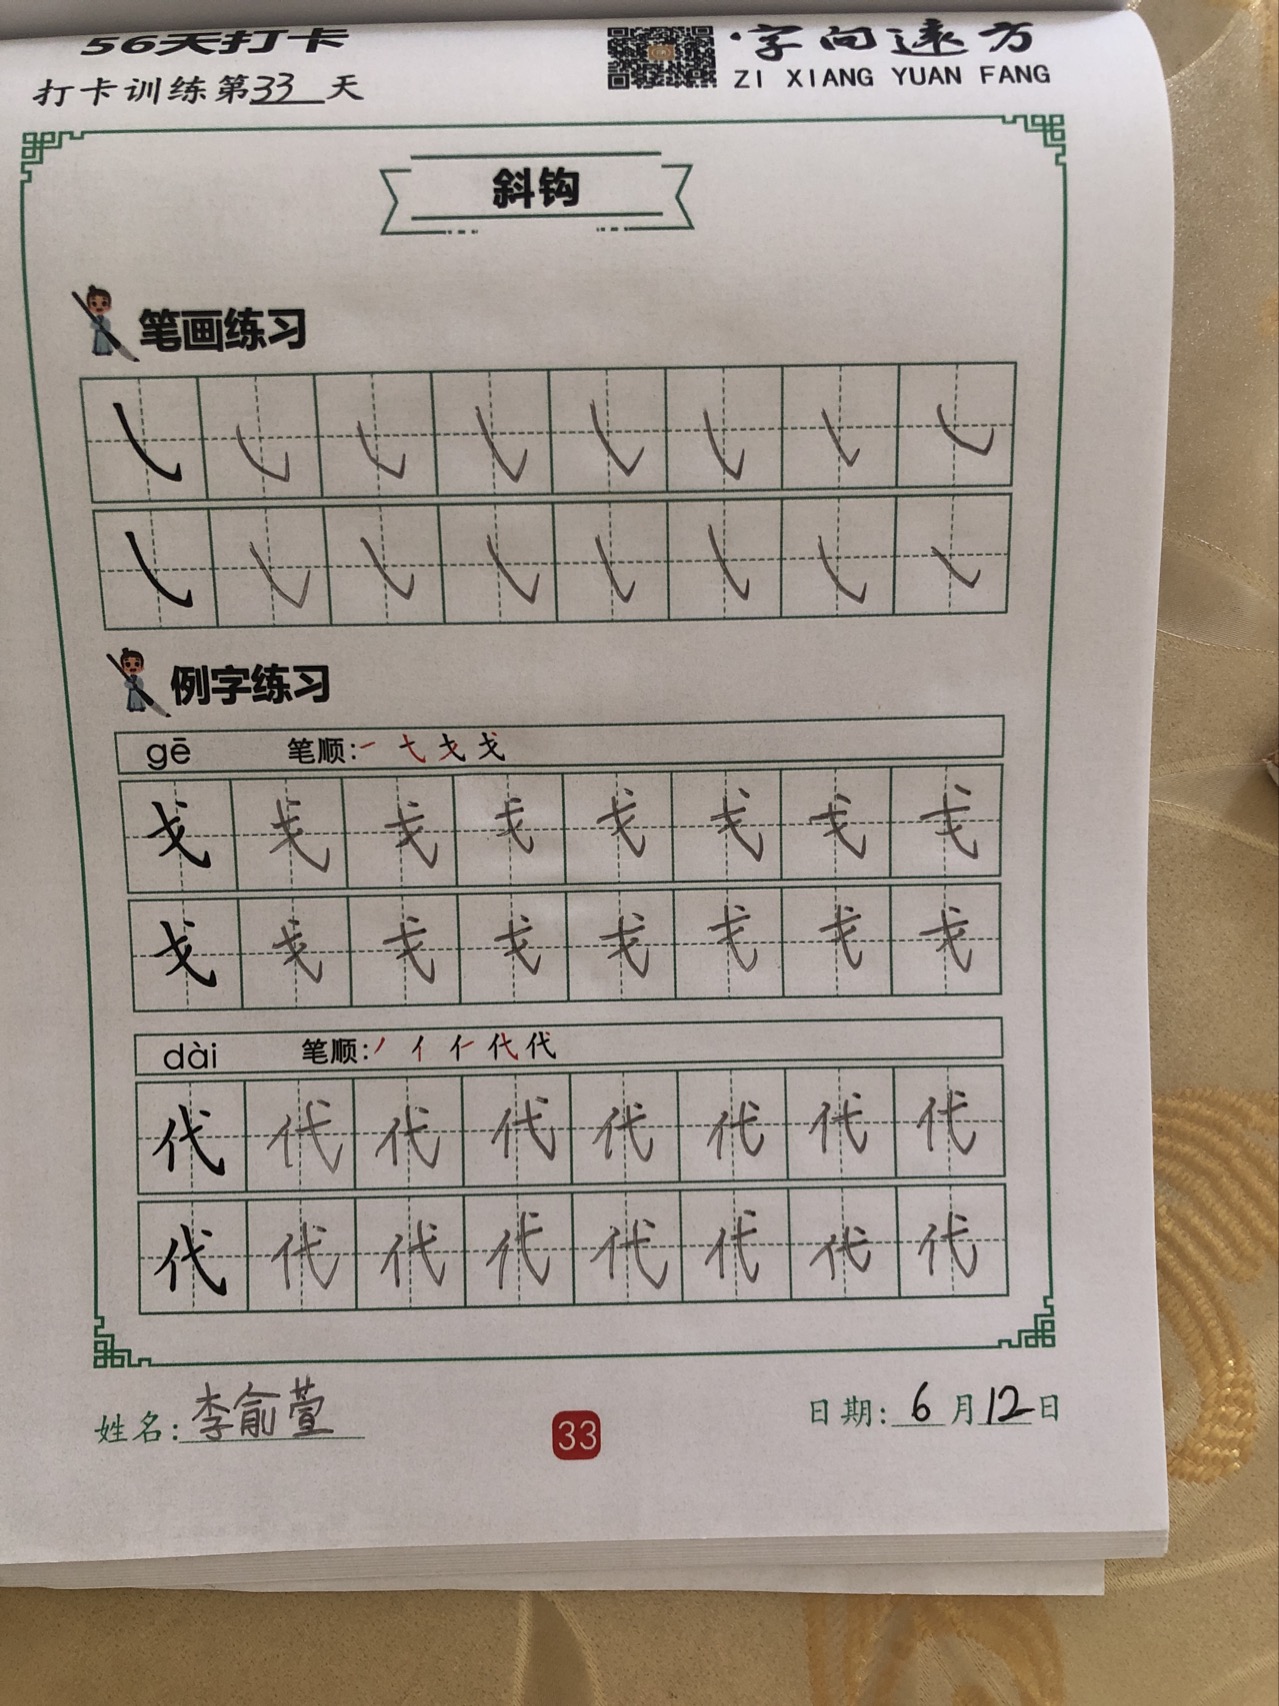 56天打卡
·字向远方
打卡训练第33天
ZI XIANG YUAN FANG
斜钩
笔画练习
㇂ ㇂ ㇂ ㇂ ㇂ ㇂ ㇂ ㇂
㇂ ㇂ ㇂ ㇂ ㇂ ㇂ ㇂ ㇂
例字练习
gē 笔顺:一 弋 戈 戈
戈 戈 戈 戈 戈 戈 戈 戈
戈 戈 戈 戈 戈 戈 戈 戈
dài 笔顺:丿 亻 仁 代 代
代 代 代 代 代 代 代 代
代 代 代 代 代 代 代 代
姓名:李俞萱
33
日期:6月12日